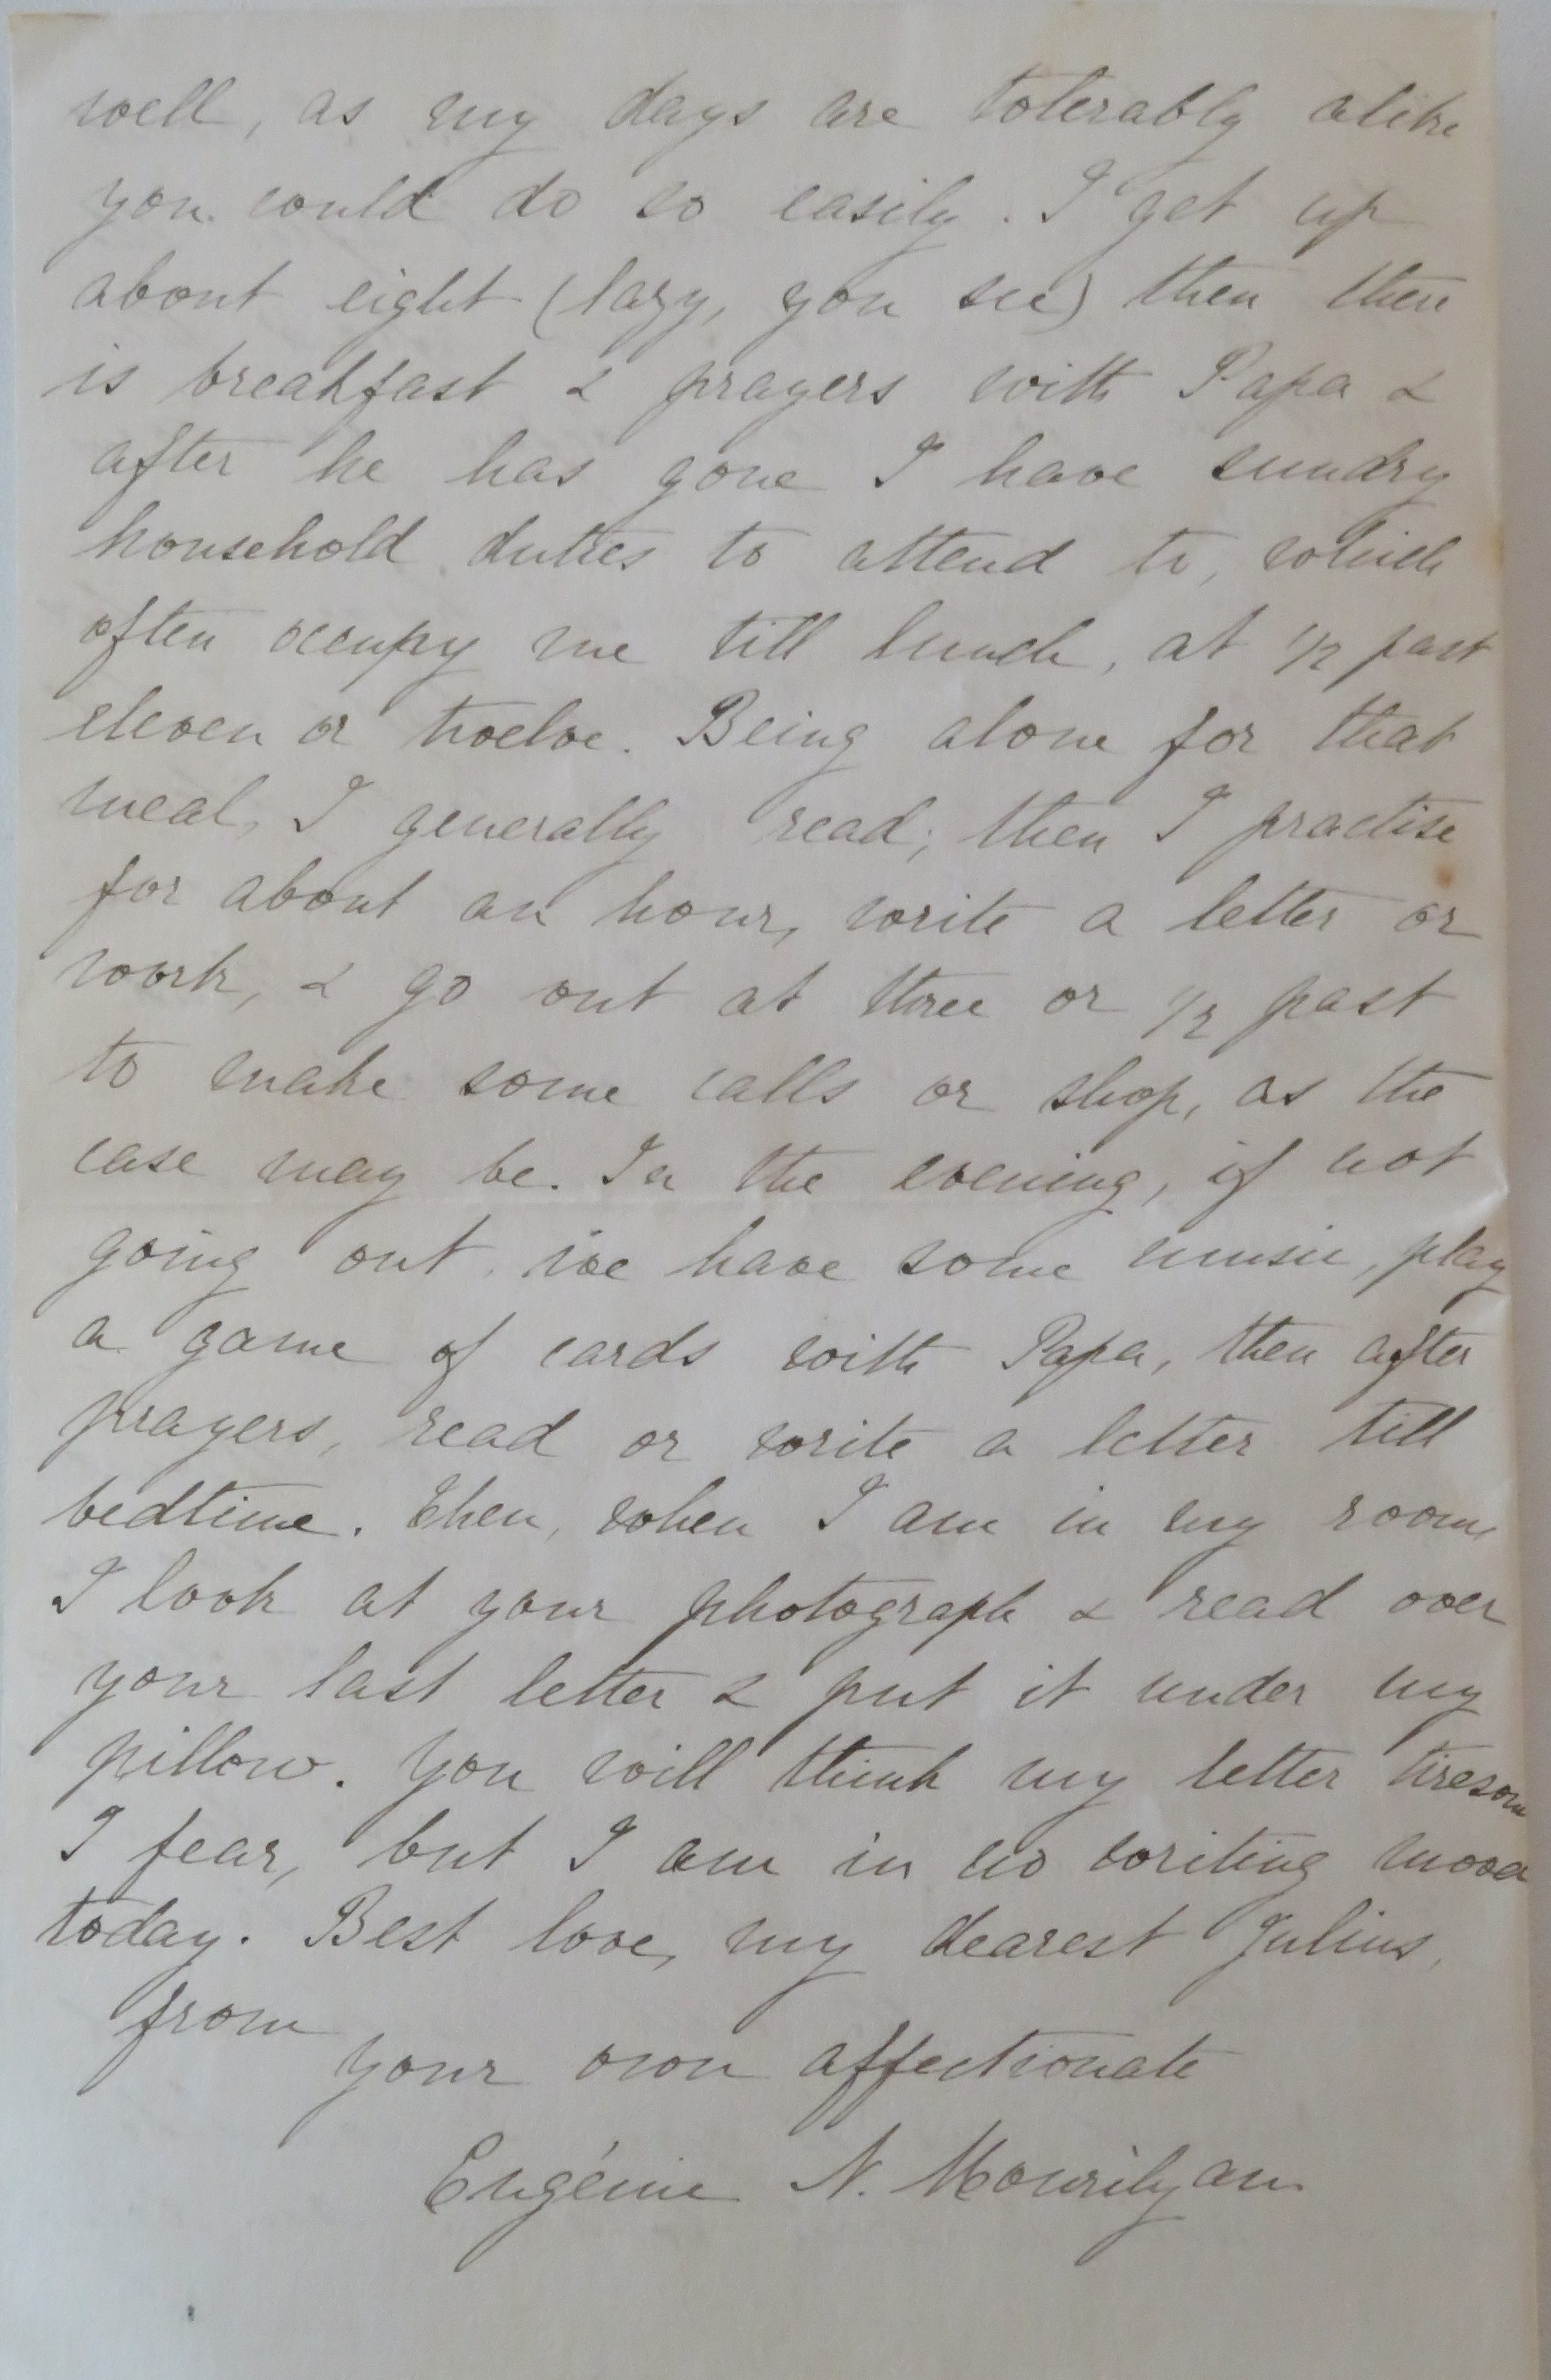 well, as my days are tolerably alike
you could do so easily. I get up
about eight (lazy, you see) then there
is breakfast & prayers with Papa &
after he has gone I have sundry
household duties to attend to, which
often occupy me till lunch, at 1/2 past
eleven or twelve. Being alone for that
meal, I generally read; then I practise
for about an hour, write a letter or
work, & go out at three or 1/2 past
to make some calls or shop, as the
case may be. In the evening, if not
going out, we have some music, play
a game of cards with Papa, then after
prayers, read or write a letter till
bedtime. Then, when I am in my room,
I look at your photograph & read over
your last letter & put it under my
pillow. You will think my letter tiresome
I fear, but I am in no writing mood
today. Best love, my dearest Julius,
from
your own affectionate
Eugénie N. Mourilyan